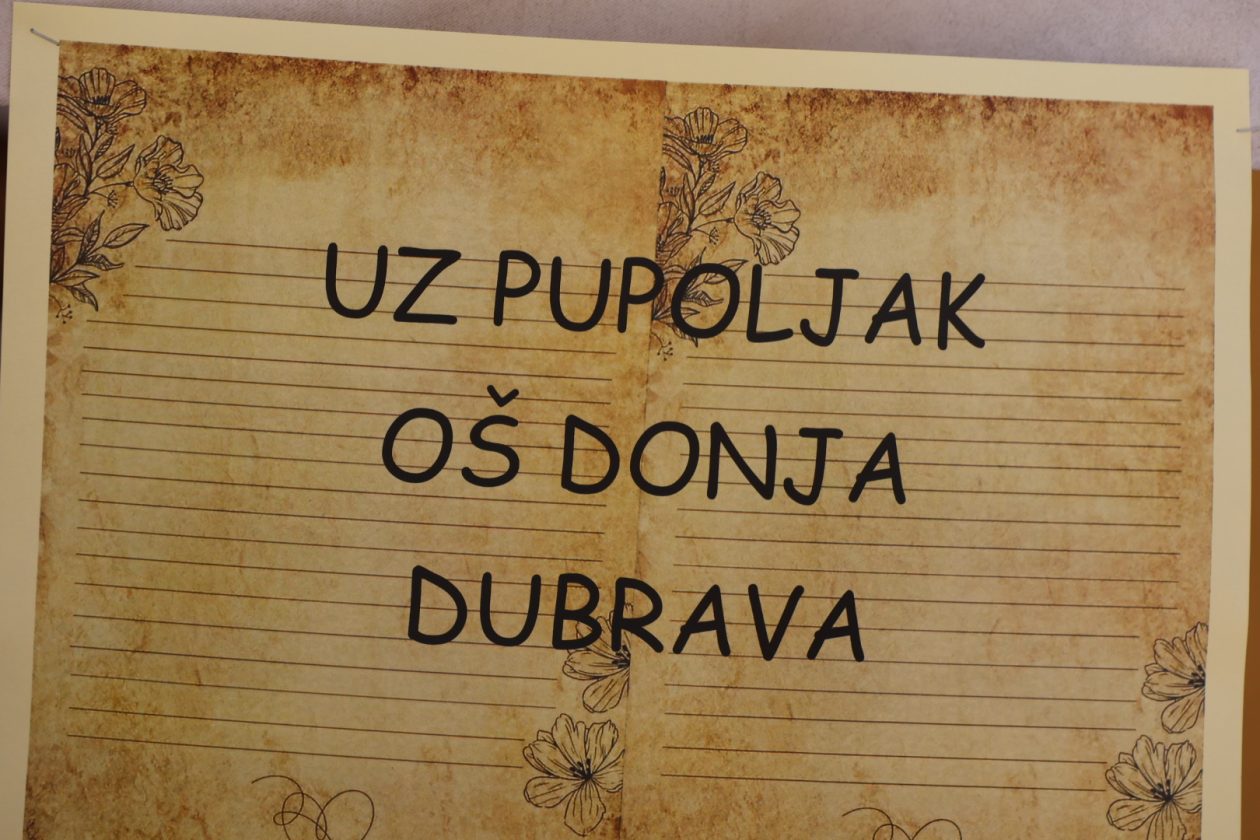 UZ PUPOLJAK
OŠ DONJA
DUBRAVA